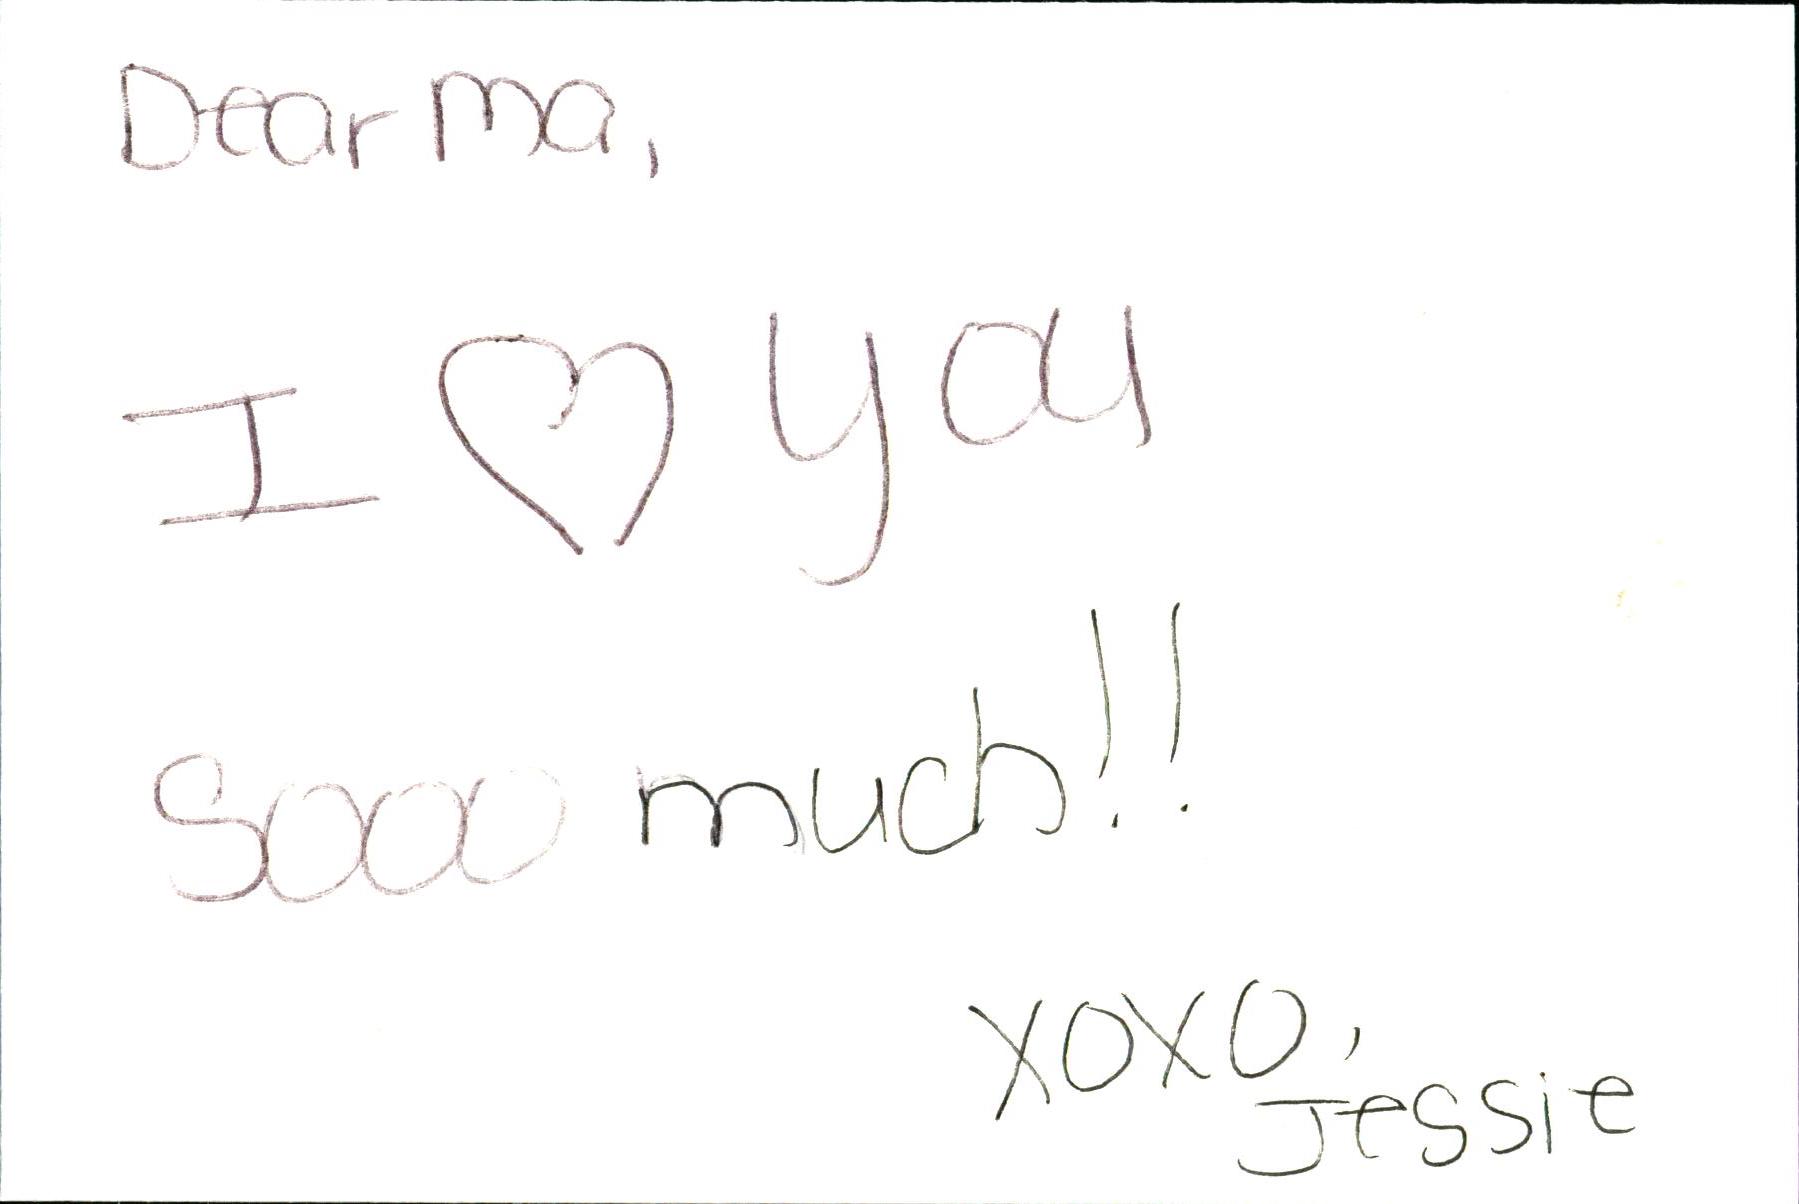 Dear Ma,
I ♡ you
Sooo much!!
XOXO,
Jessie